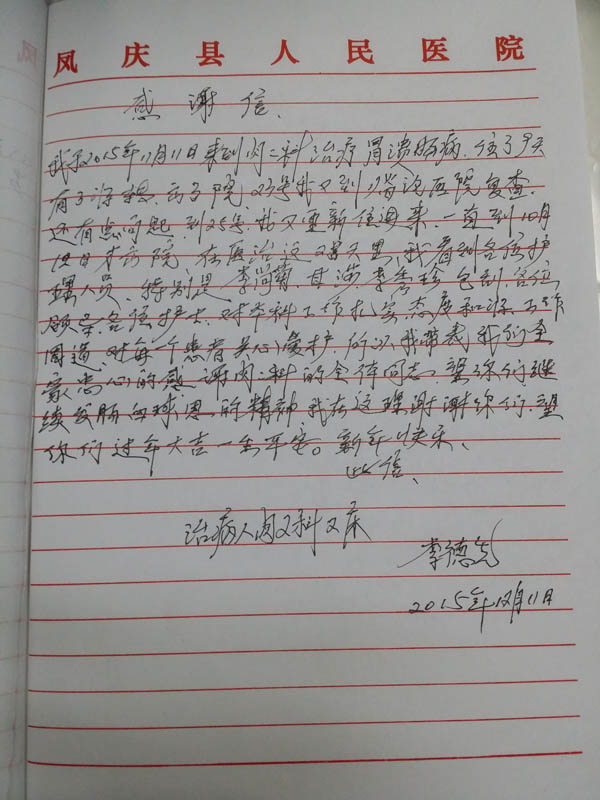 凤庆县人民医院
感谢信、
我于2015年11月11日来到内二科治疗胃溃疡病、住了9天
有了好转、出了院、23号我又到临沧医院复查、
还有点可疑、到25号、我又重新住进来、一直到12月
日才出院、在医治这天里、我看到各位护
理人员、特别是李尚菊、李秀珍包括各位
领导各位护士、对本科工作扎实、态度和谐、工作
周道、对每个患者关心爱护、所以我带表我们全
家忠心的感谢内二科的全体同志、望你们继
续发的精神我在这里谢谢你们、望
你们过年大吉一全平安。新年快乐、
此信、
治病人内2科2床
李德
2015年12月11日